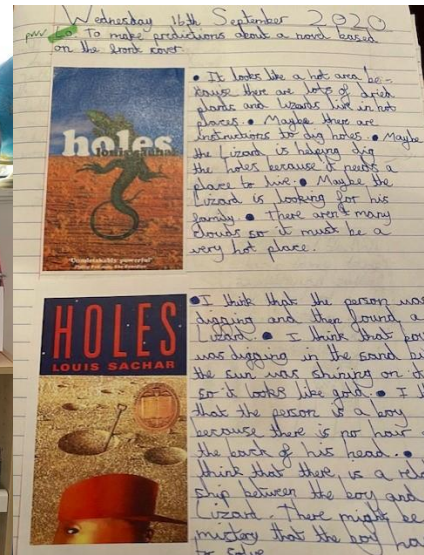 Wednesday 16th September 2020
L.O. To make predictions about a novel based
on the front cover.
holes
louis sachar
'Unmistakably powerful'
• It looks like a hot area be-
cause there are lots of dried
plants and lizards live in hot
places. • Maybe there are
instructions to dig holes. • Maybe
the Lizard is helping dig
the holes because it needs a
place to live. • Maybe the
Lizard is looking for his
family. • There aren't many
clouds so it must be a
very hot place.
HOLES
LOUIS SACHAR
• I think that the person was
digging and then found a
Lizard. • I think that
was digging in the sand
the sun was shining on
so it looks like gold. • I
that the person is a boy
because there is no hair
the back of his head. •
think that there is a
ship between the boy and
Lizard. There might be
mystery that the boy
to solve.